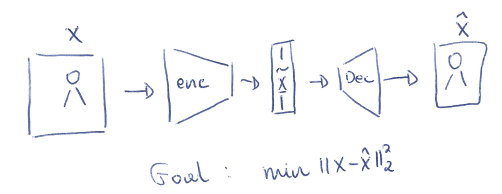 X
X̂
enc
x̃
Dec
Goal : min ||X-x̂||₂²